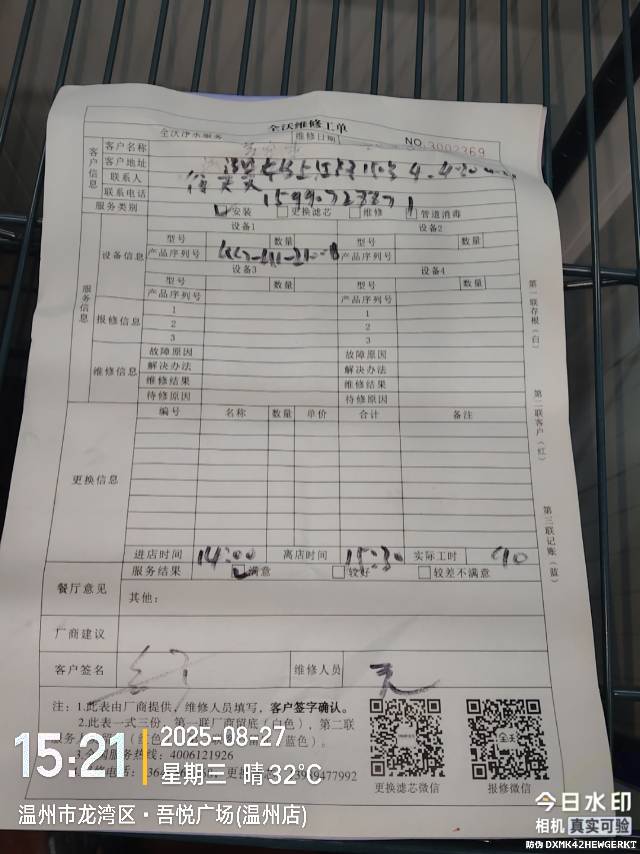 全沃维修工单
全沃净水服务 维修日期 NO.3002369
客户信息
客户名称
客户地址
联系人
联系电话
服务类别 安装 更换滤芯 维修 管道消毒
服务信息
设备信息
设备1 设备2
型号 数量 型号 数量
产品序列号 产品序列号
设备3 设备4
型号 数量 型号 数量
产品序列号 产品序列号
报修信息
1 1
2 2
3 3
维修信息
故障原因 故障原因
解决办法 解决办法
维修结果 维修结果
待修原因 待修原因
更换信息
编号 名称 数量 单价 合计 备注
进店时间 14:00 离店时间 15:30 实际工时 90
餐厅意见
服务结果 满意 较好 较差不满意
其他:
厂商建议
客户签名 维修人员
第一联存根(白)
第二联客户(红)
第三联记账(蓝)
注: 1.此表由厂商提供,维修人员填写,客户签字确认。
2.此表一式三份,第一联厂商留底(白色),第二联
蓝色)。
服务热线: 4006121926
更换滤芯微信 报修微信
15:21
2025-08-27
星期三 晴 32℃
温州市龙湾区·吾悦广场(温州店)
今日水印
相机 真实可验
防伪 DXMK42HEWGERKI